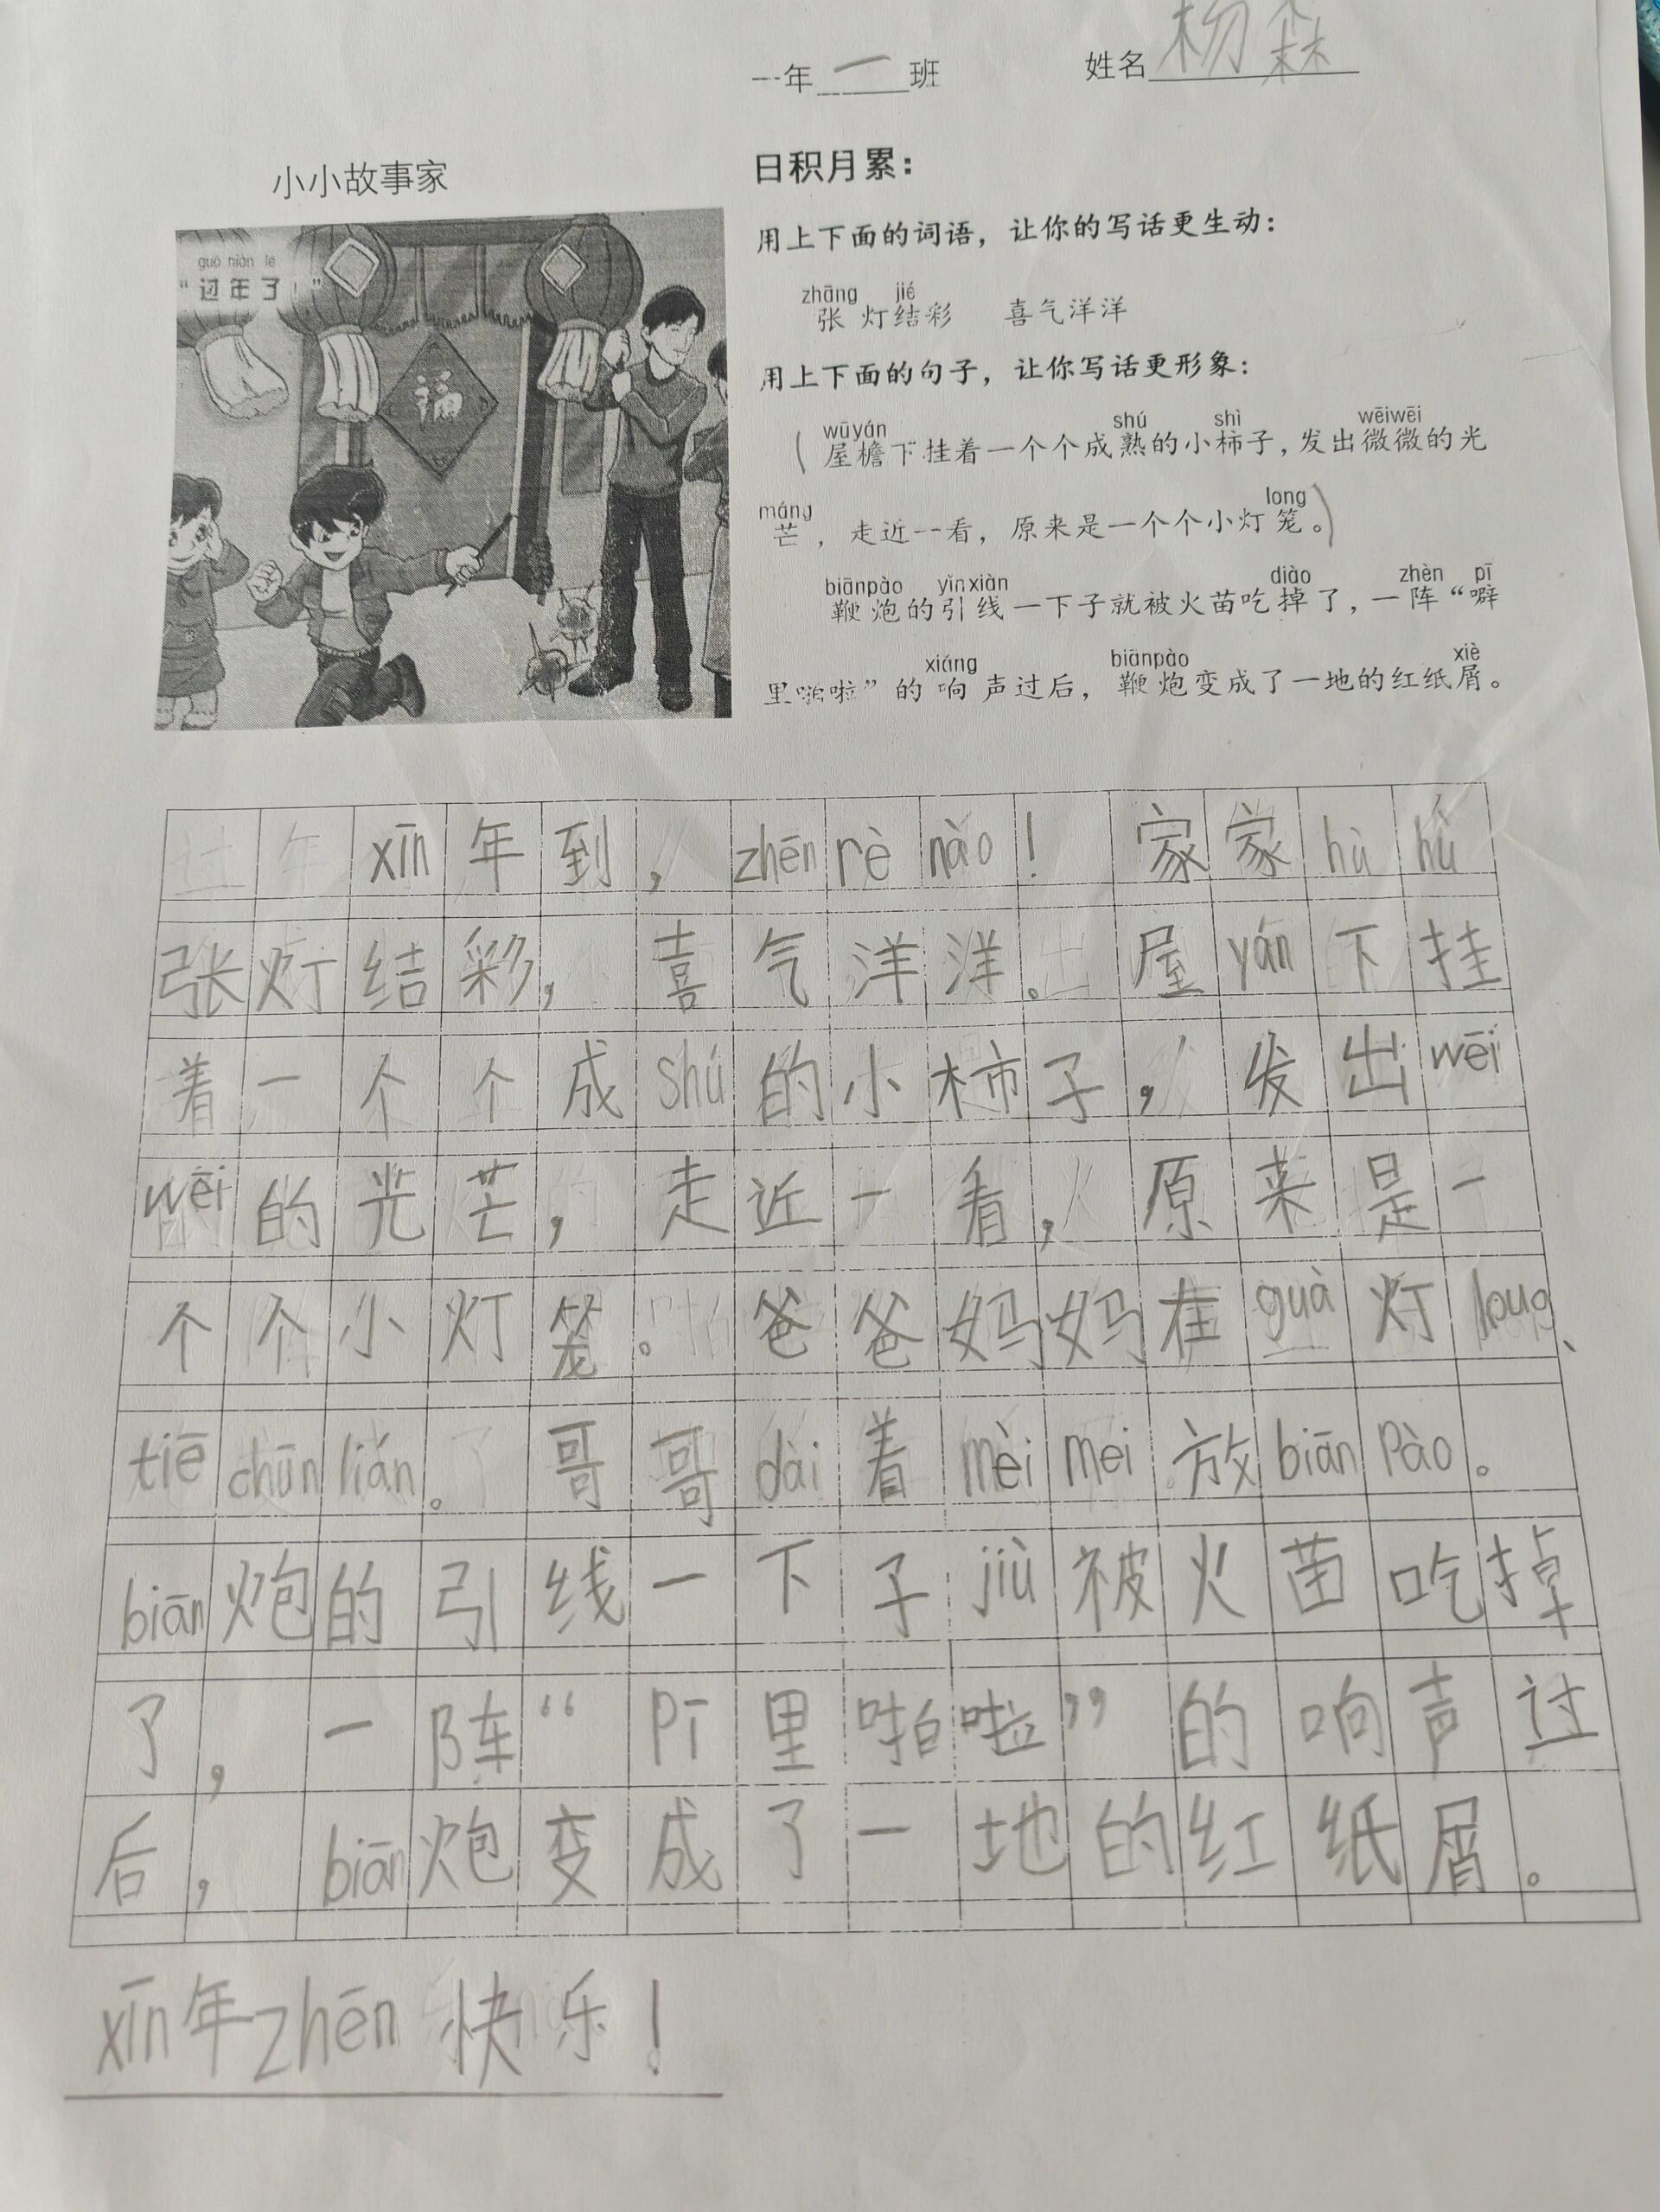 一年一班 姓名杨森
小小故事家
guò nián le
“过年了！”
日积月累：
用上下面的词语，让你的写话更生动：
zhāng jié
张灯结彩 喜气洋洋
用上下面的句子，让你写话更形象：
wūyán shú shì wēiwēi
（屋檐下挂着一个个成熟的小柿子，发出微微的光
máng long
芒，走近一看，原来是一个个小灯笼。）
biānpào yǐnxiàn diào zhèn pī
鞭炮的引线一下子就被火苗吃掉了，一阵“噼
xiǎng biānpào xiè
里啪啦”的响声过后，鞭炮变成了一地的红纸屑。
福
xīn年到，zhēn rè nào！家家hù hù
张灯结彩，喜气洋洋。屋yán下挂
着一个个成shú的小柿子，发出wēi
wēi的光芒，走近一看，原来是一
个个小灯笼。爸爸妈妈在guà灯long、
tiē chūn lián。哥哥dài着mèi mei放biān pào。
biān炮的引线一下子jiù被火苗吃掉
了，一阵“pī里啪啦”的响声过
后，biān炮变成了一地的红纸屑。
xīn年zhēn快乐！